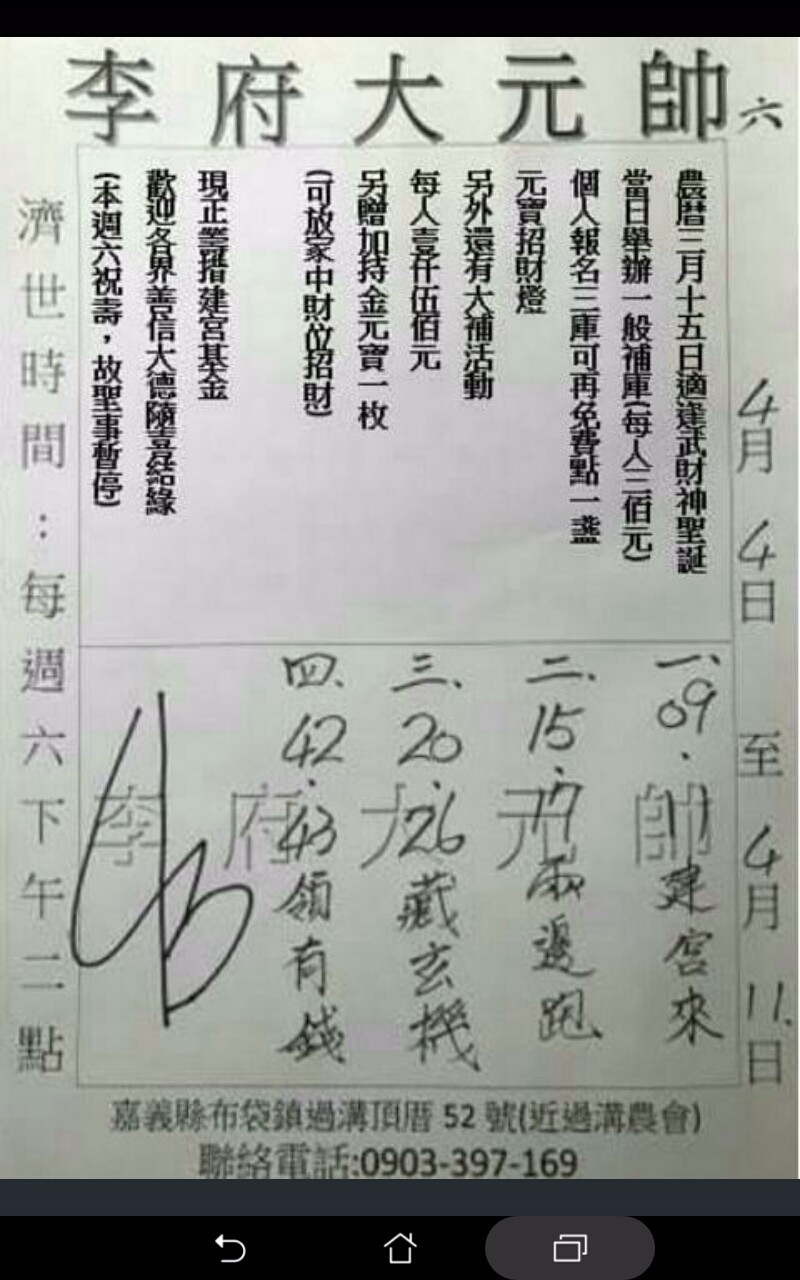 李府大元帥
六
4月4日 至 4月11日
農曆三月十五日適逢武財神聖誕
當日舉辦一般補庫(每人三佰元)
個人報名三庫可再免費點一盞
元寶招財燈
另外還有大補活動
每人壹仟伍佰元
另贈加持金元寶一枚
(可放家中財位招財)
現正籌措建宮基金
歡迎各界善信大德隨喜結緣
(本週六祝壽，故聖事暫停)
濟世時間：每週六下午二點
李府大元帥
一、09.11建宮來
二、15.17兩邊跑
三、20.26藏玄機
四、42.43領有錢
嘉義縣布袋鎮過溝頂厝 52 號(近過溝農會)
聯絡電話:0903-397-169